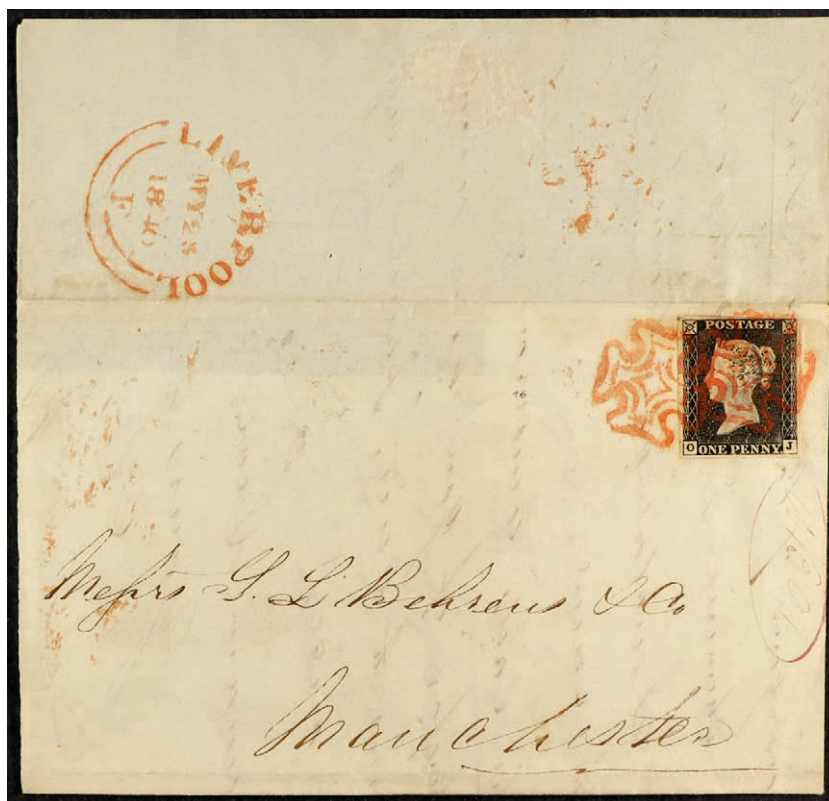 LIVERPOOL
MY 23
1840
F
POSTAGE
ONE PENNY
O J
16
Messrs S. L Behrens & Co
Manchester